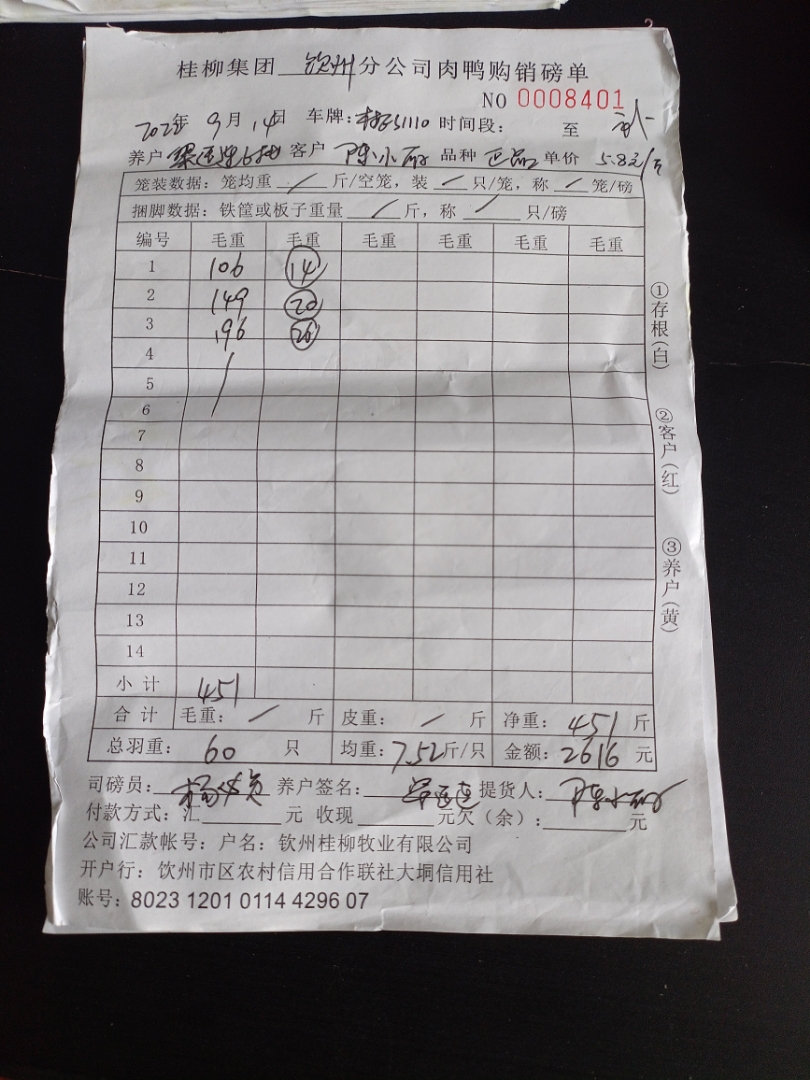 桂柳集团 钦州 分公司肉鸭购销磅单
NO 0008401
年 9月 14日 车牌: 51110 时间段: 至
养户 客户 陈小 品种 正品 单价 5.8元/斤
笼装数据: 笼均重 / 斤/空笼, 装 / 只/笼, 称 / 笼/磅
捆脚数据: 铁筐或板子重量 / 斤, 称 / 只/磅
编号 毛重 毛重 毛重 毛重 毛重 毛重
1 106 14
2 149 20
3 196 26
4
5
6
7
8
9
10
11
12
13
14
小计 451
合计 毛重: / 斤 皮重: / 斤 净重: 451 斤
总羽重: 60 只 均重: 7.52 斤/只 金额: 2616 元
司磅员: 杨 养户签名: 提货人: 陈小
付款方式: 汇 元 收现 元欠(余): 元
公司汇款帐号: 户名: 钦州桂柳牧业有限公司
开户行: 饮州市区农村信用合作联社大垌信用社
账号: 8023 1201 0114 4296 07
①存根(白)
②客户(红)
③养户(黄)